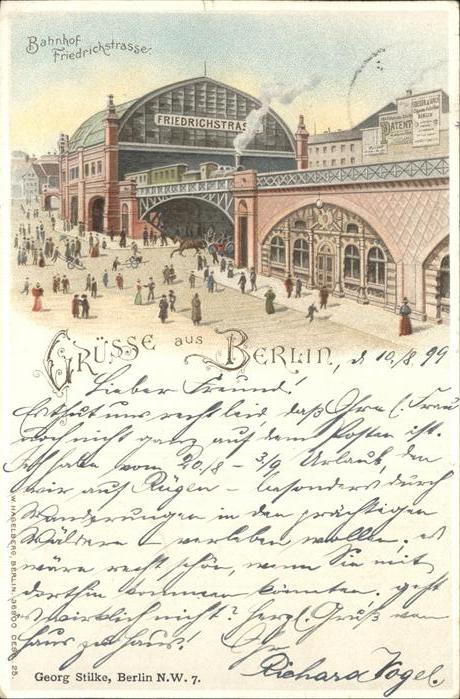 Bahnhof
Friedrichstrasse.
FRIEDRICHSTRAS
PATENT
BERLIN
GRÜSSE aus BERLIN, d 10./8. 99
Lieber Freund!
Es thut uns recht leid, daß Ihre l. Frau
noch nicht ganz auf dem Posten ist.
Ich habe vom 20/8 - 3/9 Urlaub, den
wir auf Rügen - besonders durch
Wanderungen in den prächtigen
Wäldern - verleben wollen; es
wäre recht schön, wenn Sie mit
dorthin kommen könnten. Geht
es wirklich nicht? Herzl. Gruß von
Haus zu Haus! Ihr
Richard Vogel.
W. HAGELBERG, BERLIN. 36900 DESS. 25.
Georg Stilke, Berlin N.W. 7.